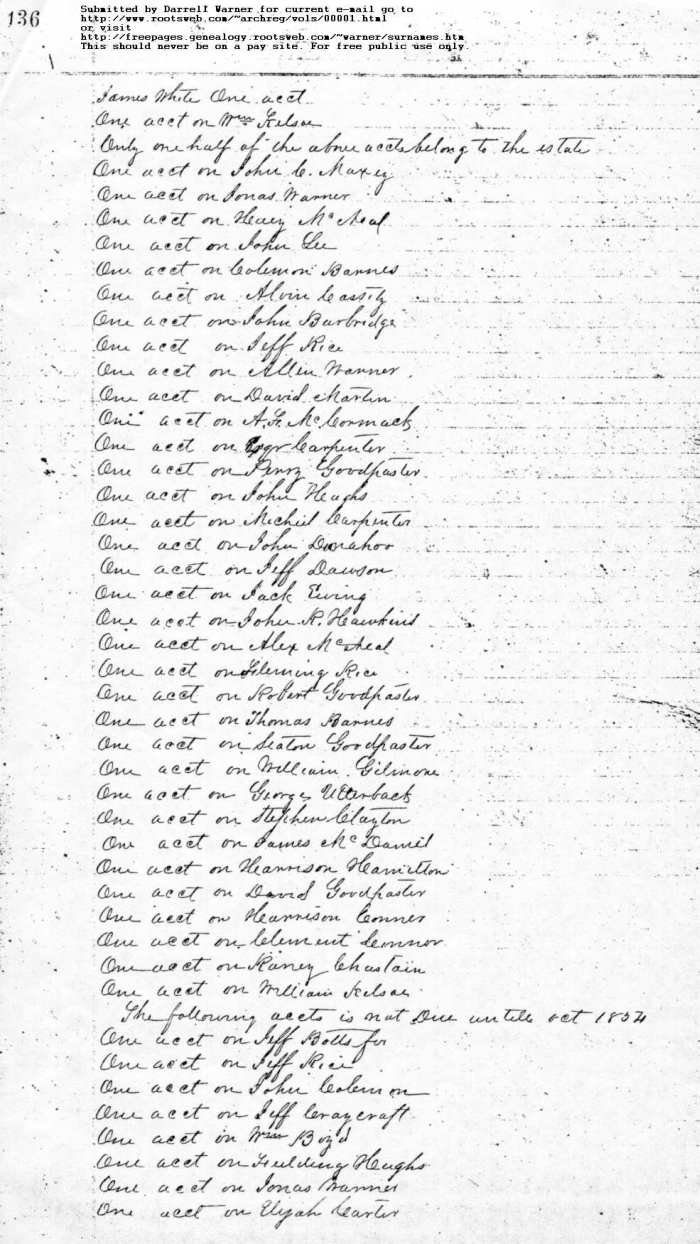 136
Submitted by Darrell Warner for current e-mail go to
http://www.rootsweb.com/~archreg/vols/00001.html
or visit
http://freepages.genealogy.rootsweb.com/~warner/surnames.htm
This should never be on a pay site. For free public use only.
James White One acct
One acct on Wm Kelsoe
Only one half of the above accts belong to the estate
One acct on John C. Maxey
One acct on Jonas Warner
One acct on Henry McNeal
One acct on John Lee
One acct on Colemon Barnes
One acct on Alvin Cassity
One acct on John Burbridge
One acct on Jeff Rice
One acct on Allen Warner
One acct on David Martin
One acct on A. F. McCormack
One acct on Carpenter
One acct on Perry Goodpaster
One acct on John Heughs
One acct on Micheil Carpenter
One acct on John Donahoo
One acct on Jeff Dawson
One acct on Jack Ewing
One acct on John R. Hawkins
One acct on Alex McNeal
One acct on Fleming Rice
One acct on Robert Goodpaster
One acct on Thomas Barnes
One acct on Seaton Goodpaster
One acct on William Gilmore
One acct on George Utterback
One acct on Stephen Clayton
One acct on James McDaniel
One acct on Harrison Hamilton
One acct on David Goodpaster
One acct on Harrison Conner
One acct on Clement Connor
One acct on Raney Chastain
One acct on William Kelsoe
The following accts is not Due untill oct 1854
One acct on Jeff Botts for
One acct on Jeff Rice
One acct on John Colemon
One acct on Jeff Craycraft
One acct on Wm Boyd
One acct on Fielding Heughs
One acct on Jonas Warner
One acct on Elijah Carter